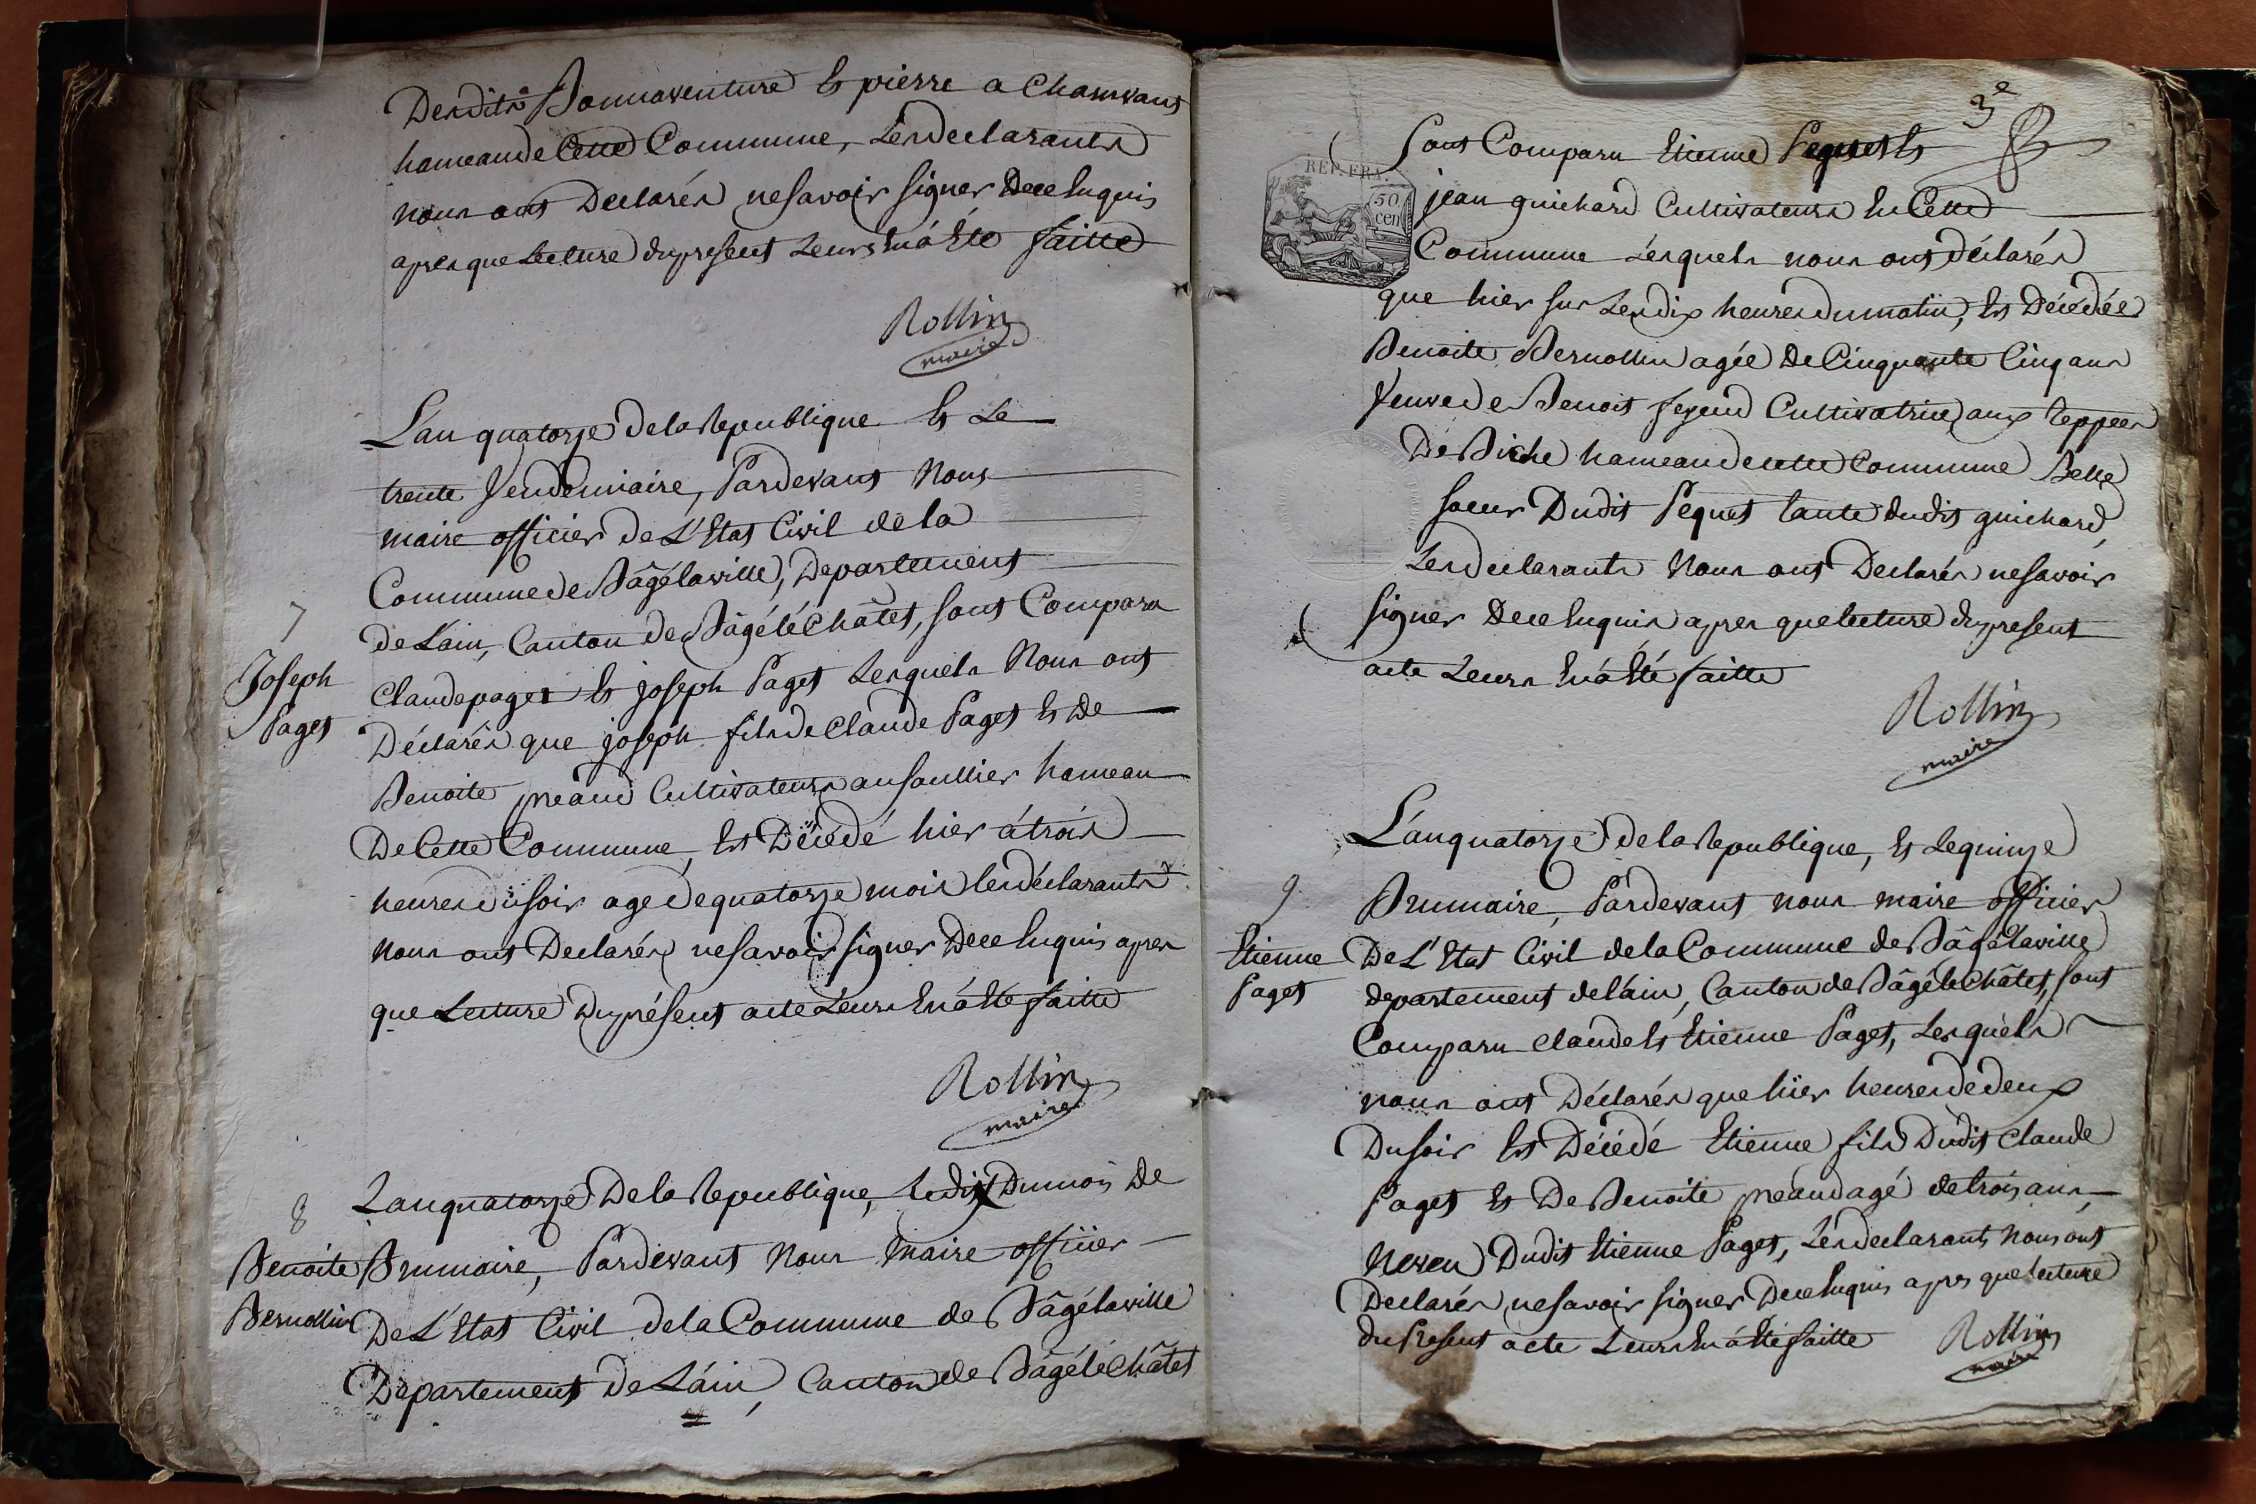 Desdits Bonnaventure et pierre a Chamvant
hameau de Cette Commune, Les declarants
nous ont Déclarés ne Savoir signer de ce Enquis
apres que Lecture du present Leurs En á Eté faitte
Rollin
maire
L'an quatorze de la Republique et Le
trente Vendemiaire, Pardevant Nous
maire officier de L'Etat Civil de la
Commune de Bâgélaville, Departement
de L'ain, Canton de Bâgé lé Châtel, sont Comparu
7
Joseph
Paget
Claude paget et joseph Paget Lesquels Nous ont
Déclarés que joseph fils de Claude Paget et de
Benoite preaud Cultivateurs au Saullier hameau
De Cette Commune, Est Décédé hier á trois
heures du soir age de quatorze mois les déclarants
nous ont Declarés ne Savoir signer de ce Enquis apres
que Lecture du présent acte Leurs En á Eté faitte
Rollin
maire
8
Benoite
Bernollin
L'an quatorze De la Republique, Le dix Du mois De
Brumaire, Pardevant Nous maire officier
De L'Etat Civil de la Commune de Bâgélaville
Departement de L'áin, Canton de Bâgé lé Châtel
3e
Sont Comparu Etienne Pequet et
REP. FRA.
50
cen
jean guichard Cultivateurs En Cette
Commune Lesquels nous ont déclarés
que hier sur Les dix heures du matin, Est Décédée
Benoite Bernollin agée de Cinquante Cinq ans
Veuve de Benoit feyeud Cultivatrice aux teppes
De Biche hameau de cette Commune Belle
soeur Dudit Pequet tante dudit guichard,
Les declarants Nous ont Declarés ne savoir
signer De ce Enquis apres que lecture du present
acte Leurs En á Eté faitte
Rollin
maire
L'an quatorze de la Republique, et le quinze
9
Etienne
Paget
Brumaire, Pardevant nous maire officier
De L'Etat Civil de la Commune de Bâgélaville
departement de l'áin, Canton de Bâgé le Châtel, sont
Comparu claude et Etienne Paget, Lesquels
nous ont Déclarés que hier heures de deux
Du soir Est Décédé Etienne fils Dudit Claude
Paget et De Benoite preaud agé de trois ans,
Neveu Dudit Etienne Paget, Les declarants Nous ont
Declarés ne savoir signer De ce Enquis apres que lecture
du Present acte Leurs En á Eté faitte
Rollin
maire